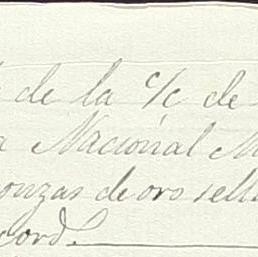 de la c/c de
Nacional
onzas de oro sell
cord.